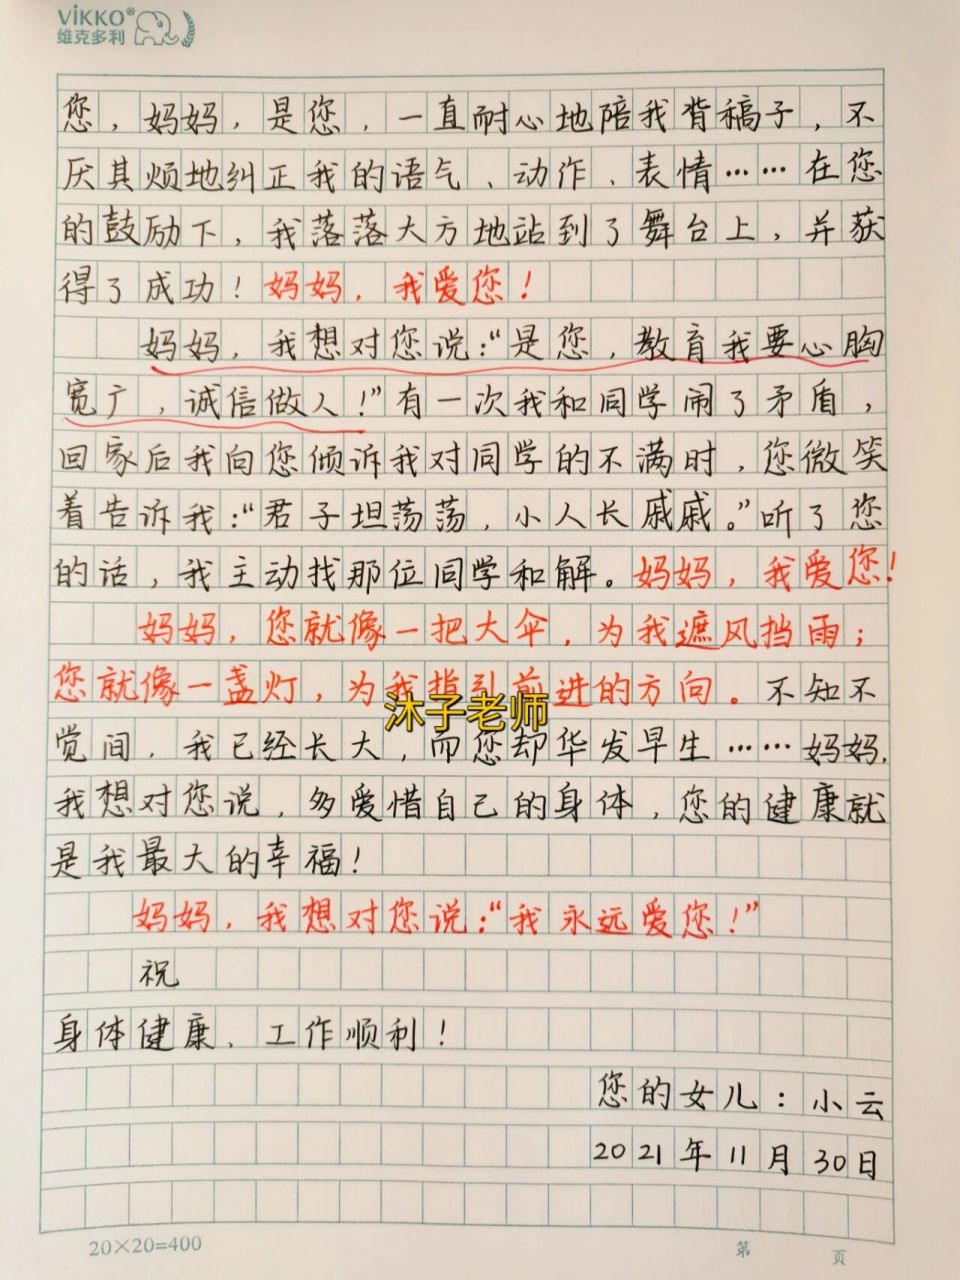 ViKKO®
维克多利
您，妈妈，是您，一直耐心地陪我背稿子，不
厌其烦地纠正我的语气、动作、表情……在您
的鼓励下，我落落大方地站到了舞台上，并获
得了成功！妈妈，我爱您！
妈妈，我想对您说：“是您，教育我要心胸
宽广，诚信做人！”有一次我和同学闹了矛盾，
回家后我向您倾诉我对同学的不满时，您微笑
着告诉我：“君子坦荡荡，小人长戚戚。”听了您
的话，我主动找那位同学和解。妈妈，我爱您！
妈妈，您就像一把大伞，为我遮风挡雨；
您就像一盏灯，为我指引前进的方向。不知不
沐子老师
觉间，我已经长大，而您却华发早生……妈妈，
我想对您说，多爱惜自己的身体，您的健康就
是我最大的幸福！
妈妈，我想对您说：“我永远爱您！”
祝
身体健康、工作顺利！
您的女儿：小云
2021年11月30日
20×20=400
第 页